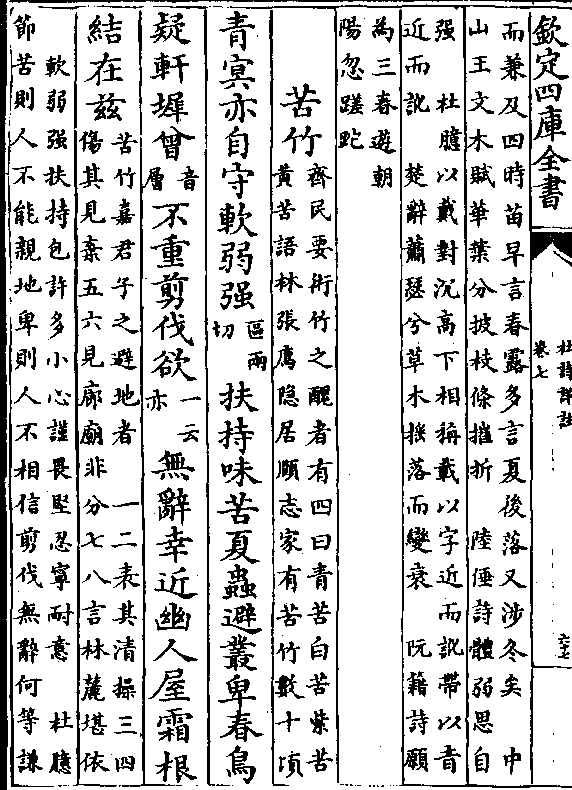 欽定四庫全書
杜詩詳註
卷七
六十七
而兼及四時苗早言春露多言夏後落又涉冬矣 中
山王文木賦華葉分披枝條摧折 陸倕詩體弱思自
强 杜臆以戴對沉高下相稱戴以字近而訛帶以音
近而訛 楚辭蕭瑟兮草木揺落而變衰 阮籍詩願
為三春遊朝
陽忽蹉跎
苦竹 齊民要術竹之醜者有四曰青苦白苦紫苦
黄苦語林張廌隐居頤志家有苦竹數十頃
青冥亦自守軟弱强區兩切扶持味苦夏蟲避叢卑春鳥
疑軒墀曾音層不重剪伐欲一云亦無辭幸近幽人屋霜根
結在兹 苦竹嘉君子之避地者 一二表其清操三四
傷其見棄五六見廊廟非分七八言林麓堪依
軟弱强扶持包許多小心謹畏堅忍寧耐意 杜臆
節苦則人不能親地卑則人不相信剪伐無辭何等謙